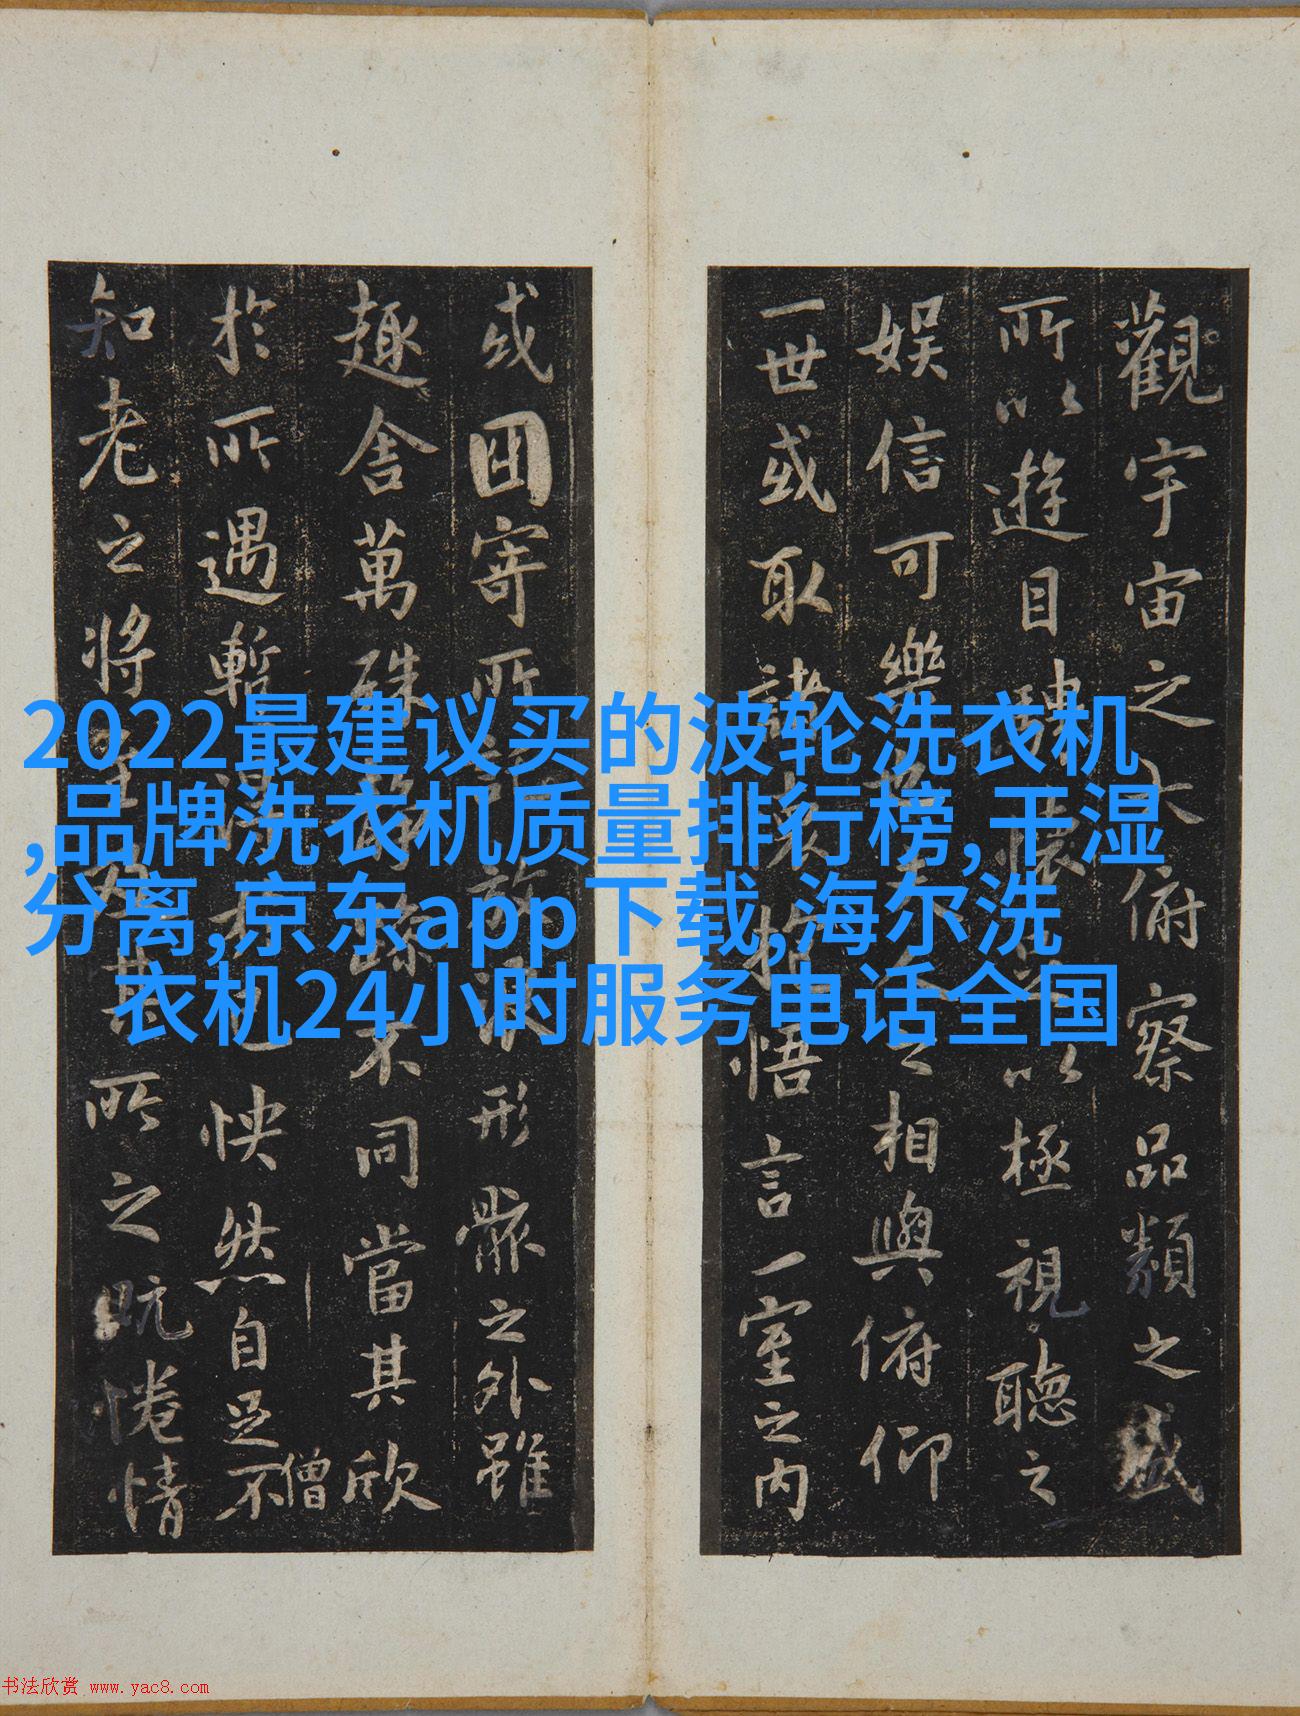 觀宇宙之大俯察品類之盛
所以遊目騁懷足以極視聽之
娛信可樂也夫人之相與俯仰
一世或取諸懷抱悟言一室之內
或因寄所託放浪形骸之外雖
趣舍萬殊靜躁不同當其欣
僧
於所遇暫得於己怏然自足不
知老之將至及其所之既惓情
2022最建议买的波轮洗衣机
,品牌洗衣机质量排行榜,干湿
分离,京东app下载,海尔洗
衣机24小时服务电话全国
书法欣赏 www.yac8.com